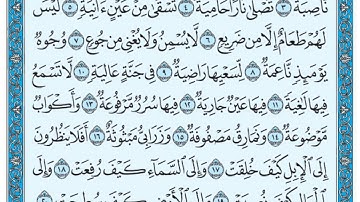 نَّاصِبَةٌ ٣ تَصْلَىٰ نَارًا حَامِيَةً ٤ تُسْقَىٰ مِنْ عَيْنٍ ءَانِيَةٍ ٥ لَّيْسَ
لَهُمْ طَعَامٌ إِلَّا مِن ضَرِيعٍ ٦ لَّا يُسْمِنُ وَلَا يُغْنِي مِن جُوعٍ ٧ وُجُوهٌ
يَوْمَئِذٍ نَّاعِمَةٌ ٨ لِّسَعْيِهَا رَاضِيَةٌ ٩ فِي جَنَّةٍ عَالِيَةٍ ١٠ لَّا تَسْمَعُ
فِيهَا لَٰغِيَةً ١١ فِيهَا عَيْنٌ جَارِيَةٌ ١٢ فِيهَا سُرُرٌ مَّرْفُوعَةٌ ١٣ وَأَكْوَابٌ
مَّوْضُوعَةٌ ١٤ وَنَمَارِقُ مَصْفُوفَةٌ ١٥ وَزَرَابِيُّ مَبْثُوثَةٌ ١٦ أَفَلَا يَنظُرُونَ
إِلَى ٱلْإِبِلِ كَيْفَ خُلِقَتْ ١٧ وَإِلَى ٱلسَّمَآءِ كَيْفَ رُفِعَتْ ١٨ وَإِلَى
ٱلْجِبَالِ كَيْفَ نُصِبَتْ ١٩ وَإِلَى ٱلْأَرْضِ كَيْفَ سُطِحَتْ ٢٠